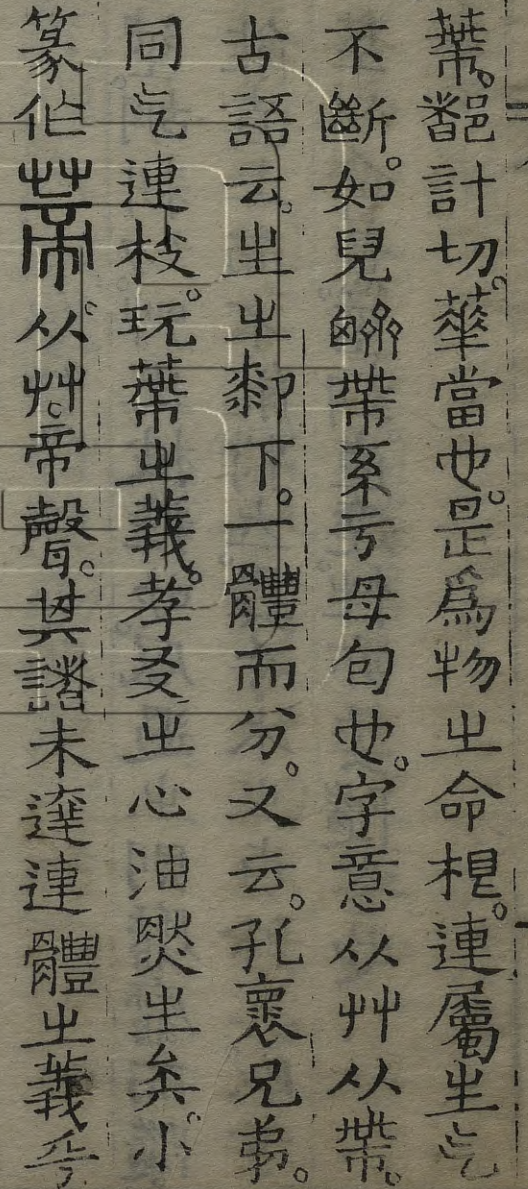 蔕。都計切。華當也。是爲物㞢命根。連屬生气
不斷。如兒臍帶系亏母包也。字意从艸从帶。
古語云。生㞢厀下。一體而分。又云。孔褱兄弟。
同气連枝。玩蔕㞢義。孝友㞢心油然生矣。小
篆作蒂。从艸。帝聲。其諧未達連體㞢義乎